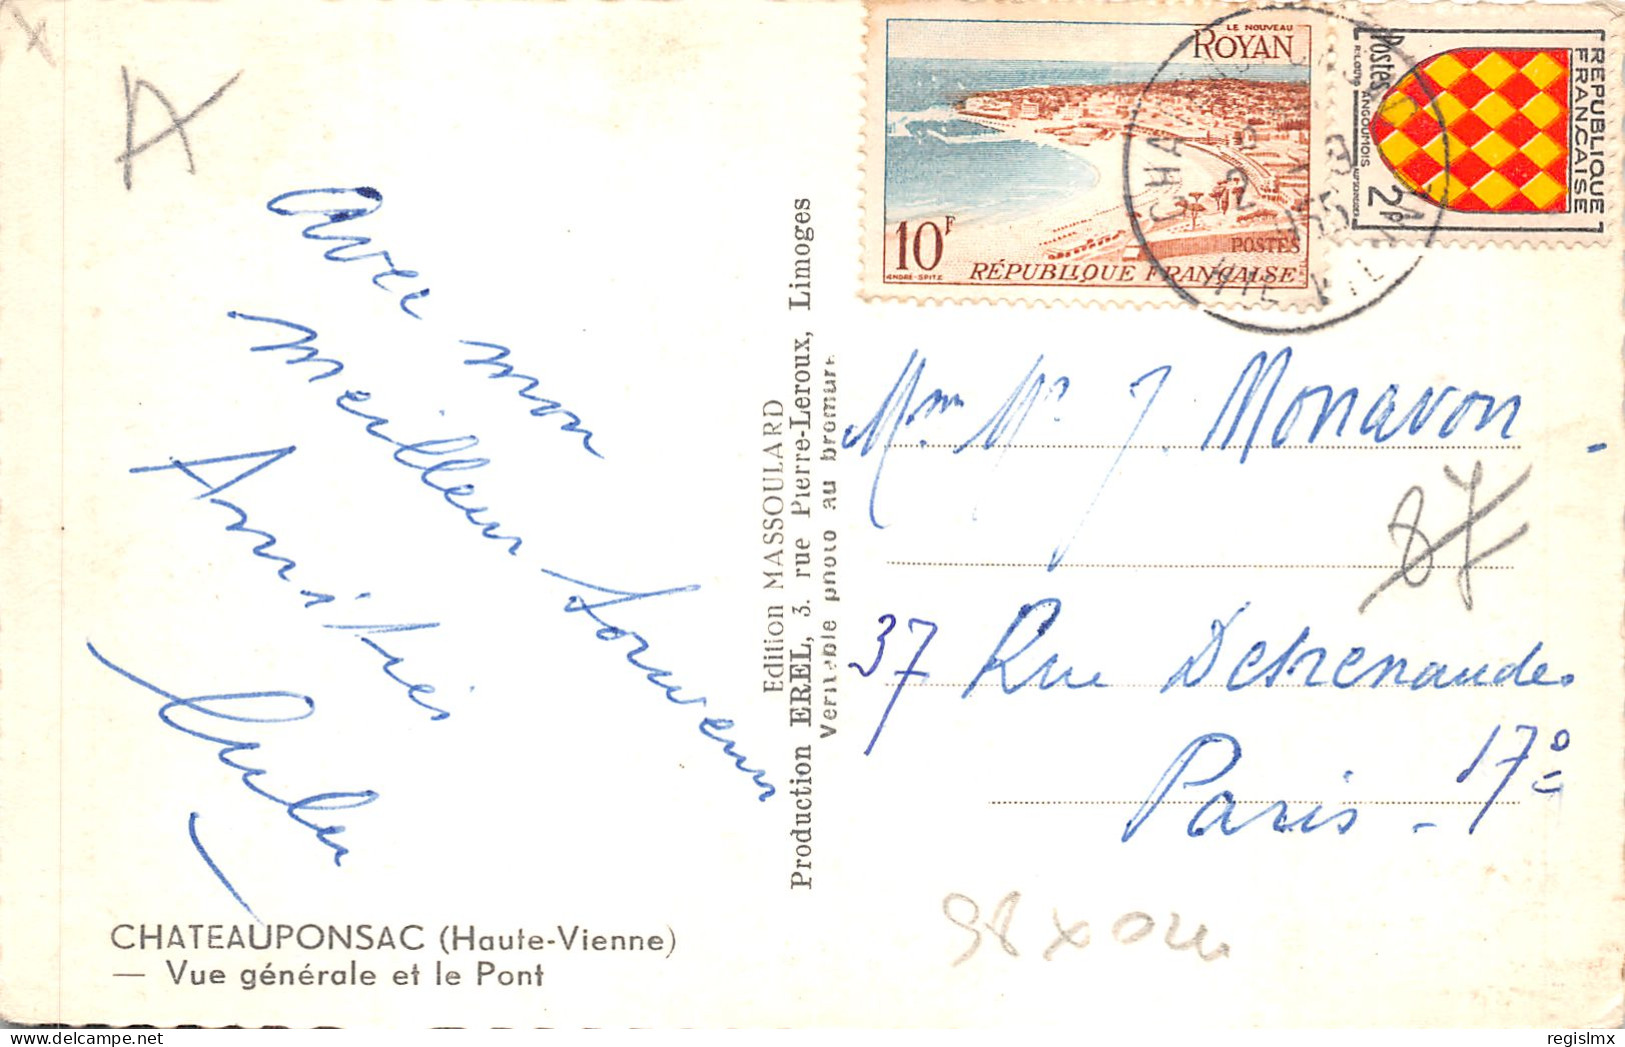 Avec mon
meilleur souvenir
Amitiés
CHATEAUPONSAC (Haute-Vienne)
— Vue générale et le Pont
Edition MASSOULARD
Production EREL, 3, rue Pierre-Leroux, Limoges
Véritable photo au bromure
LE NOUVEAU
ROYAN
10F
POSTES
ANDRÉ-SPITZ
RÉPUBLIQUE FRANÇAISE
REPUBLIQUE
FRANÇAISE
Postes
ANGOUMOIS
2F
J. Monavon
87
37 Rue Desrenaudes
Paris - 17e
regislmx